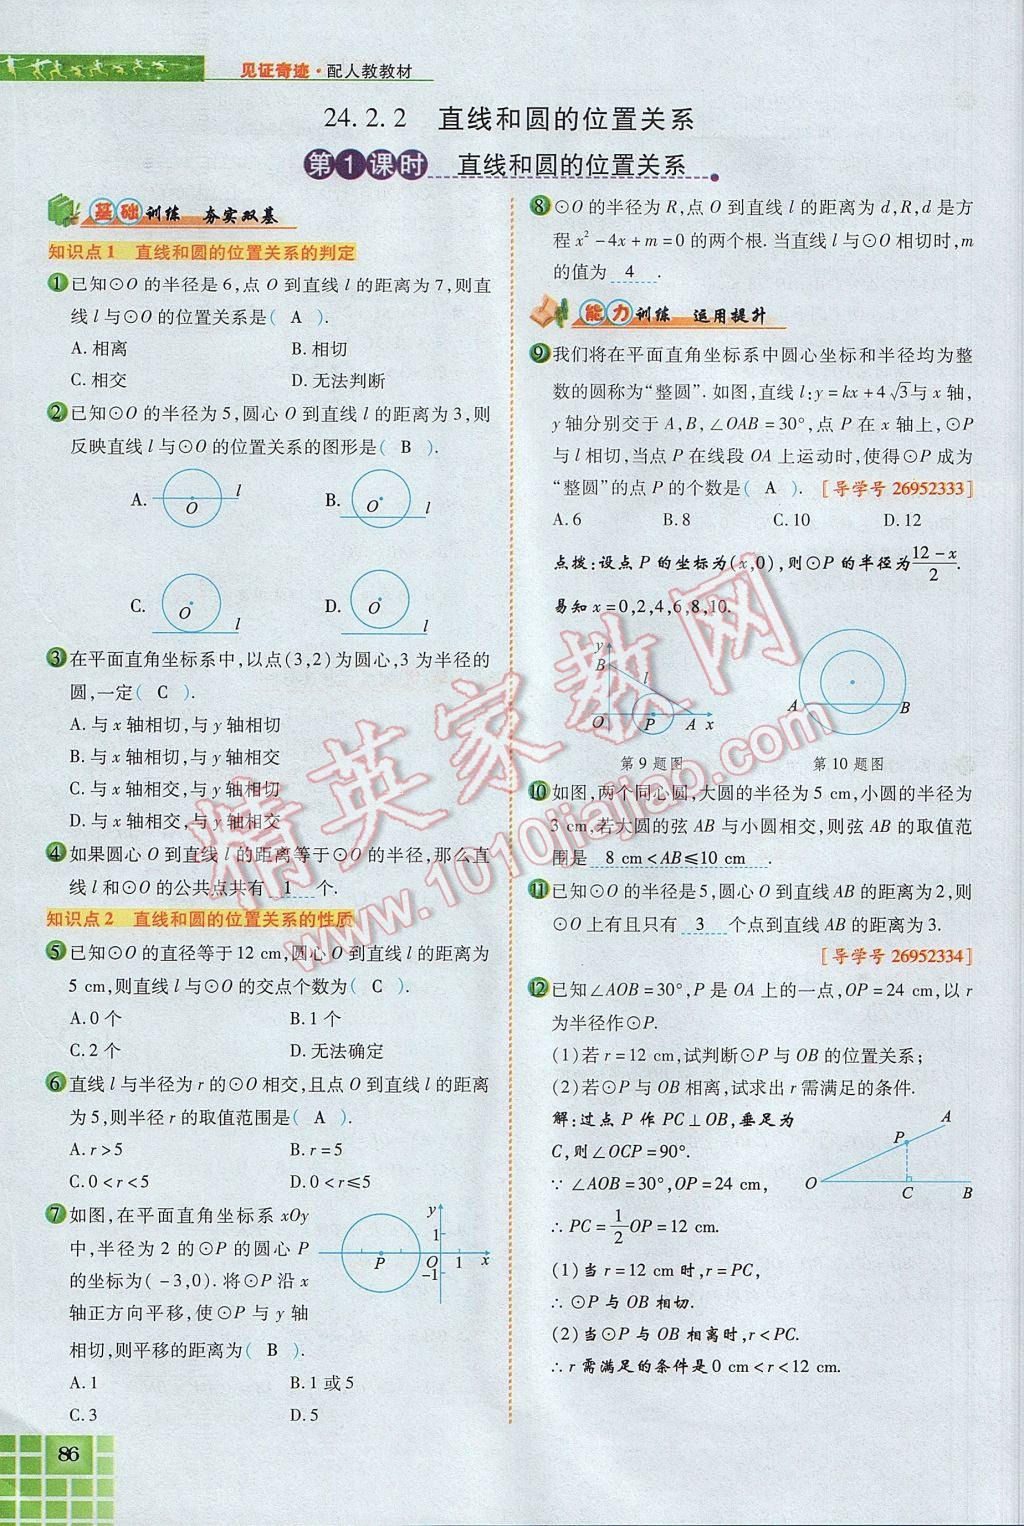 见证奇迹·配人教教材
24.2.2 直线和圆的位置关系
第1课时 直线和圆的位置关系
基础训练 夯实双基
知识点1 直线和圆的位置关系的判定
1 已知⊙O的半径是6,点O到直线l的距离为7,则直
线l与⊙O的位置关系是( A ).
A.相离 B.相切
C.相交 D.无法判断
2 已知⊙O的半径为5,圆心O到直线l的距离为3,则
反映直线l与⊙O的位置关系的图形是( B ).
A. O l B. O l
C. O l D. O l
3 在平面直角坐标系中,以点(3,2)为圆心,3为半径的
圆,一定( C ).
A.与x轴相切,与y轴相切
B.与x轴相切,与y轴相交
C.与x轴相交,与y轴相切
D.与x轴相交,与y轴相交
4 如果圆心O到直线l的距离等于⊙O的半径,那么直
线l和⊙O的公共点共有 1 个.
知识点2 直线和圆的位置关系的性质
5 已知⊙O的直径等于12 cm,圆心O到直线l的距离为
5 cm,则直线l与⊙O的交点个数为( C ).
A.0个 B.1个
C.2个 D.无法确定
6 直线l与半径为r的⊙O相交,且点O到直线l的距离
为5,则半径r的取值范围是( A ).
A.r>5 B.r=5
C.0<r<5 D.0<r≤5
7 如图,在平面直角坐标系xOy
中,半径为2的⊙P的圆心P
的坐标为(-3,0).将⊙P沿x
轴正方向平移,使⊙P与y轴
相切,则平移的距离为( B ).
y 1 P O 1 x -1
A.1 B.1或5
C.3 D.5
86
8 ⊙O的半径为R,点O到直线l的距离为d,R,d是方
程x²-4x+m=0的两个根.当直线l与⊙O相切时,m
的值为 4 .
能力训练 运用提升
9 我们将在平面直角坐标系中圆心坐标和半径均为整
数的圆称为“整圆”.如图,直线l:y=kx+4√3与x轴,
y轴分别交于A,B,∠OAB=30°,点P在x轴上,⊙P
与l相切,当点P在线段OA上运动时,使得⊙P成为
“整圆”的点P的个数是( A ). [导学号 26952333]
A.6 B.8 C.10 D.12
点拨:设点P的坐标为(x,0),则⊙P的半径为(12-x)/2.
易知x=0,2,4,6,8,10.
y B l O P A x A B
第9题图 第10题图
10 如图,两个同心圆,大圆的半径为5 cm,小圆的半径为
3 cm,若大圆的弦AB与小圆相交,则弦AB的取值范
围是 8 cm<AB≤10 cm .
11 已知⊙O的半径是5,圆心O到直线AB的距离为2,则
⊙O上有且只有 3 个点到直线AB的距离为3.
[导学号 26952334]
12 已知∠AOB=30°,P是OA上的一点,OP=24 cm,以r
为半径作⊙P.
(1)若r=12 cm,试判断⊙P与OB的位置关系;
(2)若⊙P与OB相离,试求出r需满足的条件.
解:过点P作PC⊥OB,垂足为
C,则∠OCP=90°.
∵∠AOB=30°,OP=24 cm,
∴PC=1/2OP=12 cm.
(1)当r=12 cm时,r=PC,
∴⊙P与OB相切.
(2)当⊙P与OB相离时,r<PC.
∴r需满足的条件是0 cm<r<12 cm.
A P O C B
精英家教网
www.1010jiajiao.com